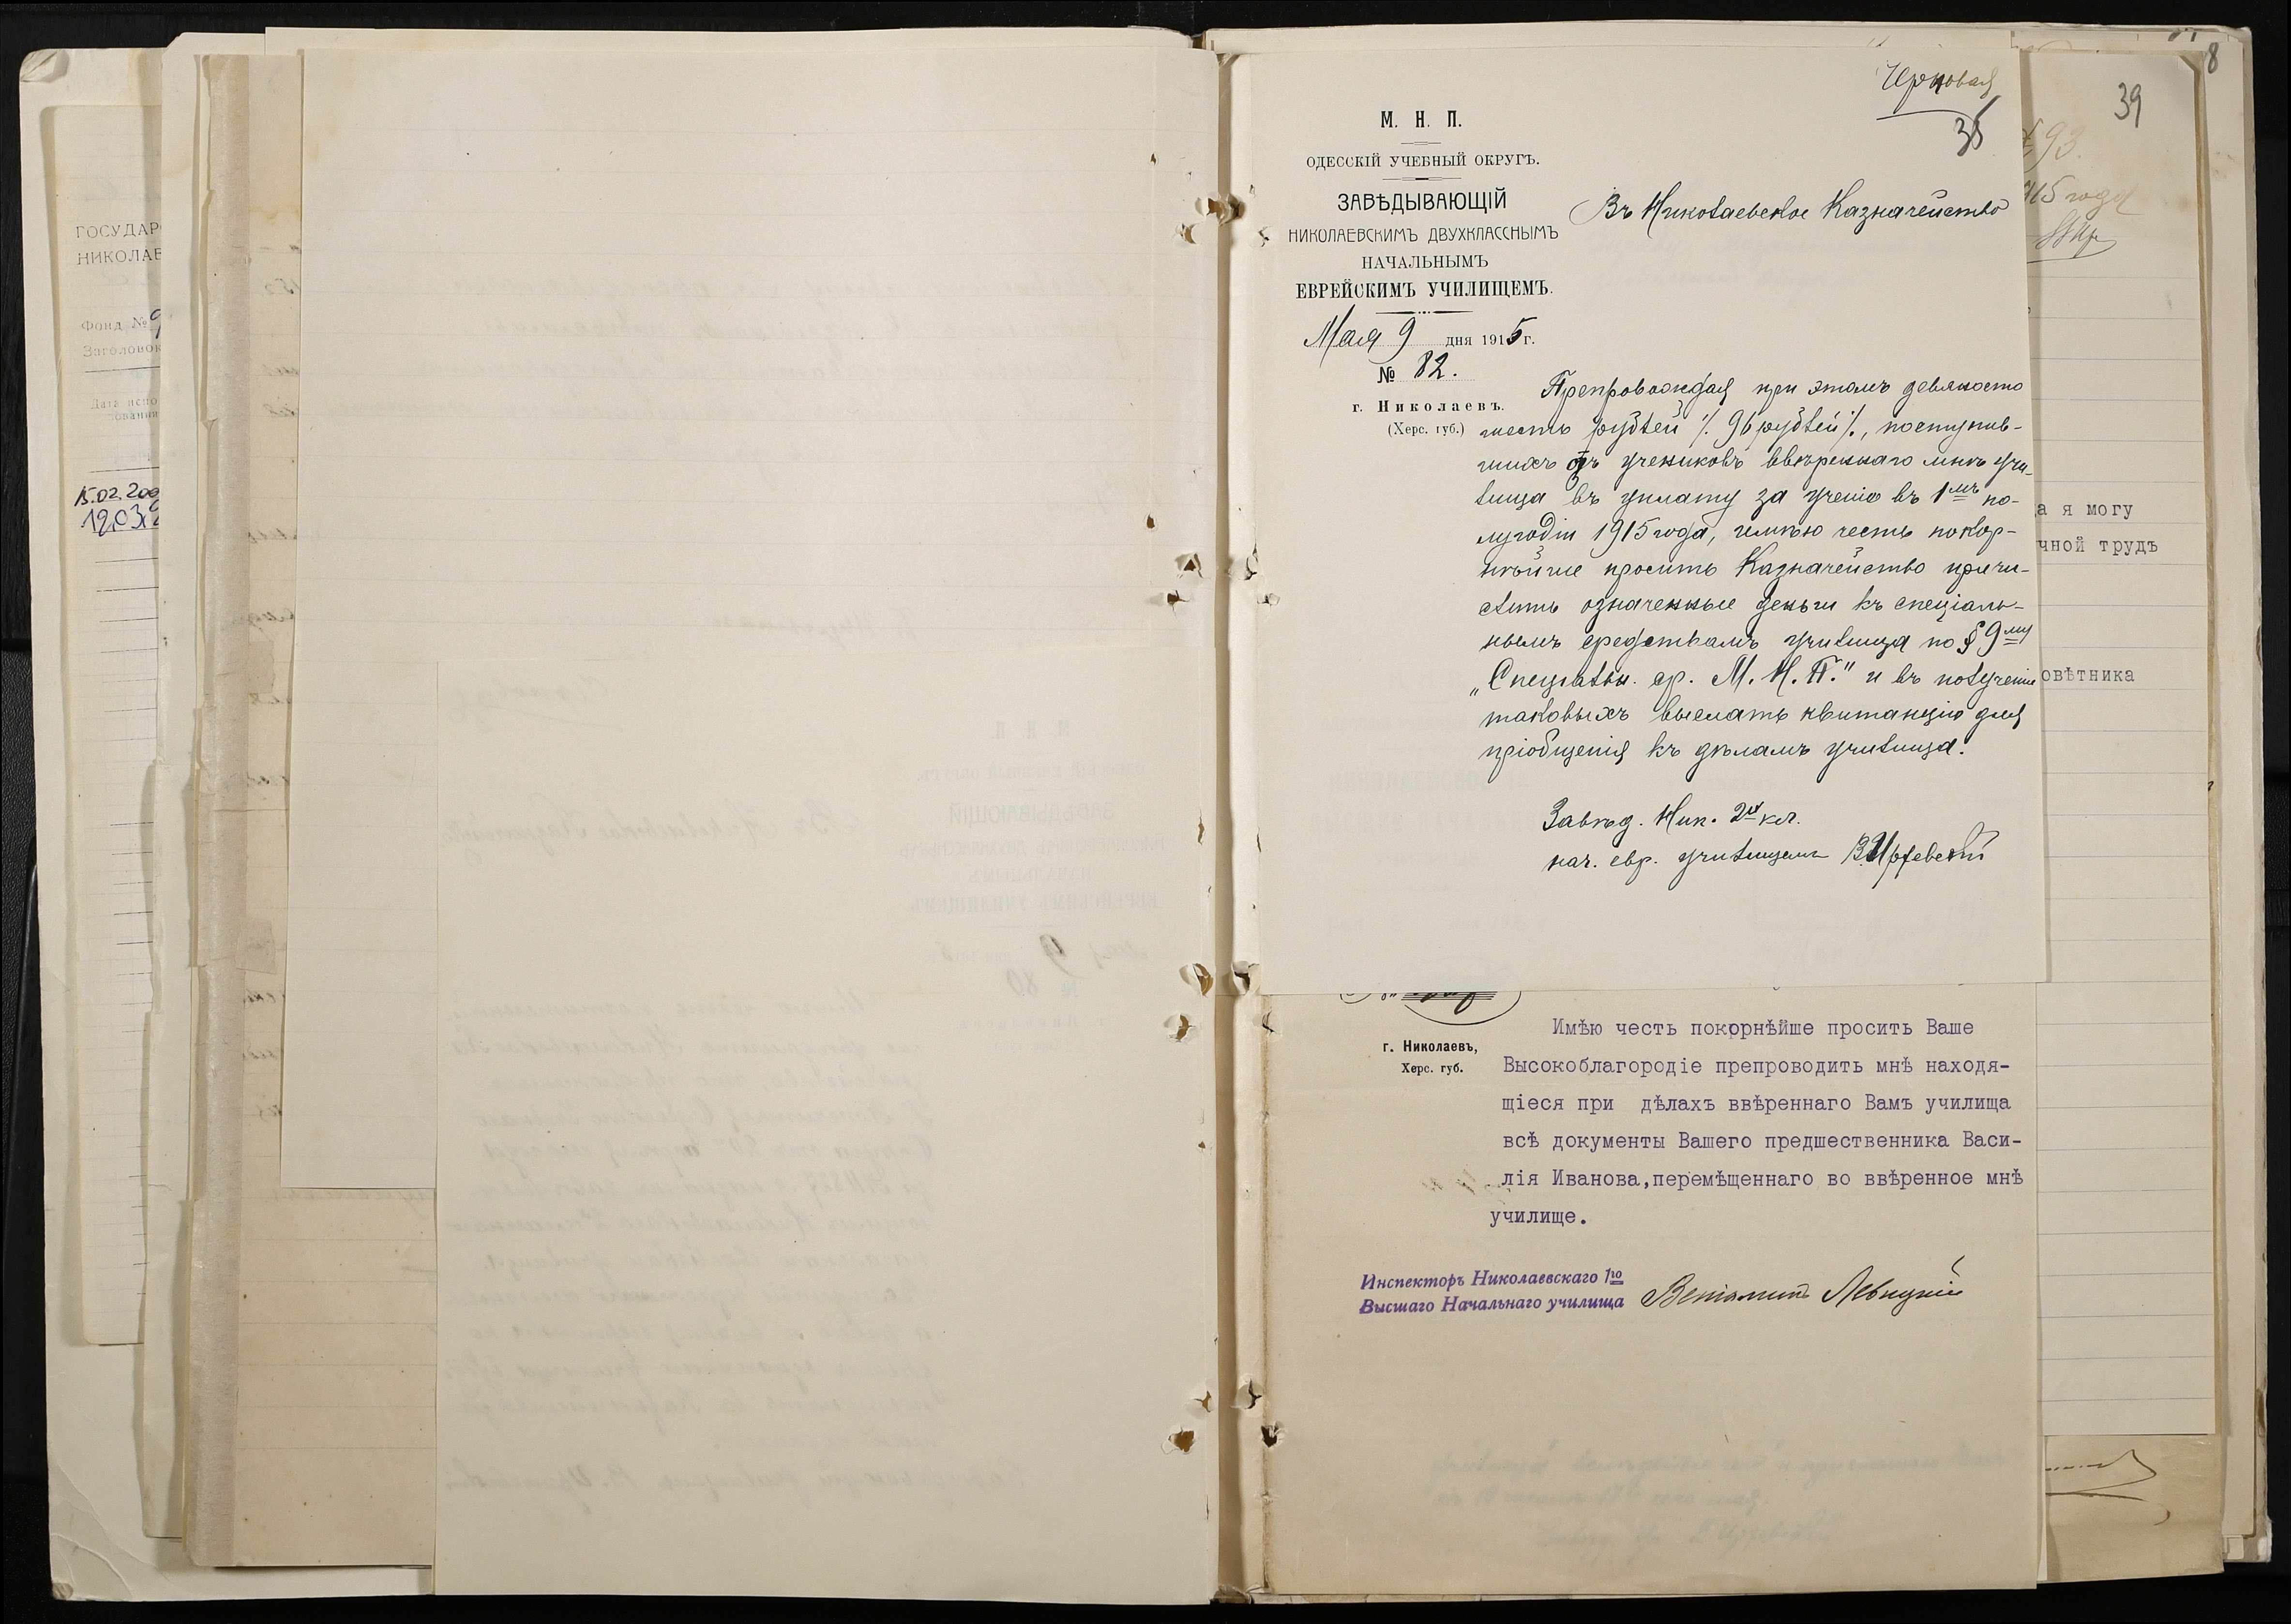 ГОСУДАР
НИКОЛАЕ
Фонд №9
Заголовок
Дата испо
зования
15.02.200
19.03.2
Черновая
М. Н. П.
ОДЕССКІЙ УЧЕБНЫЙ ОКРУГЪ.
ЗАВѢДЫВАЮЩІЙ
НИКОЛАЕВСКИМЪ ДВУХКЛАССНЫМЪ
НАЧАЛЬНЫМЪ
ЕВРЕЙСКИМЪ УЧИЛИЩЕМЪ.
Мая 9 дня 1915 г.
№ 82.
г. Николаевъ.
(Херс. губ.)
Въ Николаевское Казначейство
Препровождая при этомъ девяносто
шесть рублей /. 96 рублей /., поступив-
шихъ отъ учениковъ ввѣреннаго мнѣ учи-
лища въ уплату за ученіе въ 1мъ по-
лугодіи 1915 года, имѣю честь покор-
нѣйше просить Казначейство причи-
слить означенныя деньги къ спеціаль-
нымъ средствамъ училища по § 9му
„Спеціальн. ср. М. Н. П." и въ полученіи
таковыхъ выслать квитанцію для
пріобщенія къ дѣламъ училища.
Завѣд. Ник. 2хъ кл.
нач. евр. училищемъ
39
93.
915 года
а я могу
чной трудъ
овѣтника
г. Николаевъ,
Херс. губ.
Имѣю честь покорнѣйше просить Ваше
Высокоблагородіе препроводить мнѣ находя-
щіеся при дѣлахъ ввѣреннаго Вамъ училища
всѣ документы Вашего предшественника Васи-
лія Иванова,перемѣщеннаго во ввѣренное мнѣ
училище.
Инспекторъ Николаевскаго 1го
Высшаго Начальнаго училища Веніаминъ Левицкій